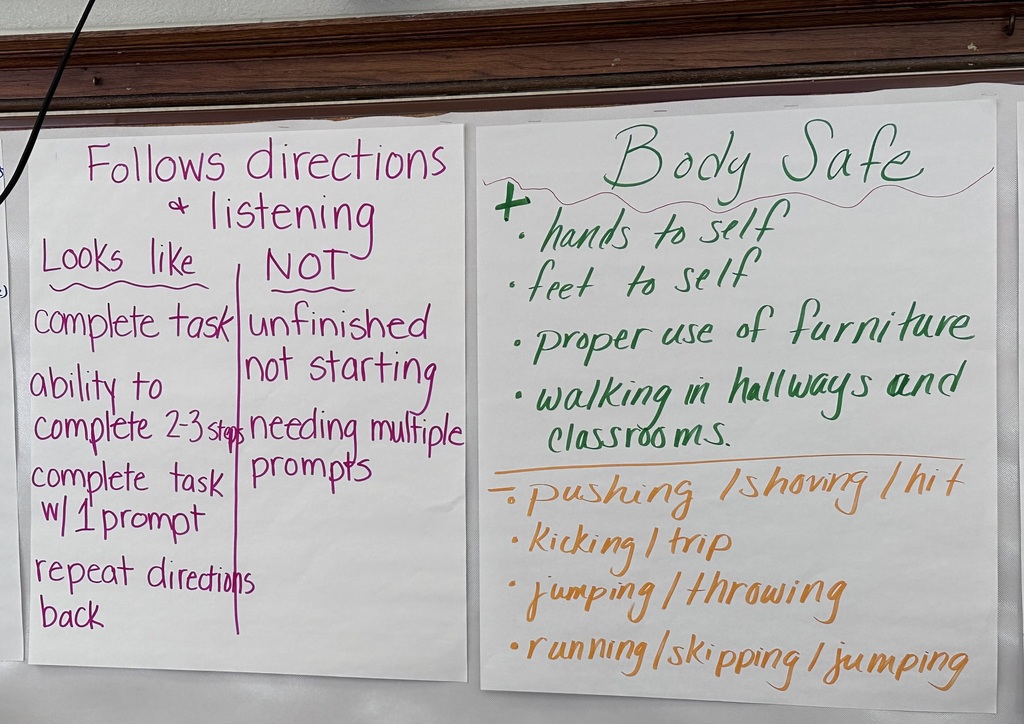 Follows directions
& listening
Looks like
NOT
complete task
unfinished
not starting
ability to
complete 2-3 steps
needing multiple
prompts
complete task
w/ 1 prompt
repeat directions
back
Body Safe
+
• hands to self
• feet to self
• proper use of furniture
• walking in hallways and
classrooms.
- • pushing /shoving /hit
• kicking / trip
• jumping / throwing
• running/skipping/jumping